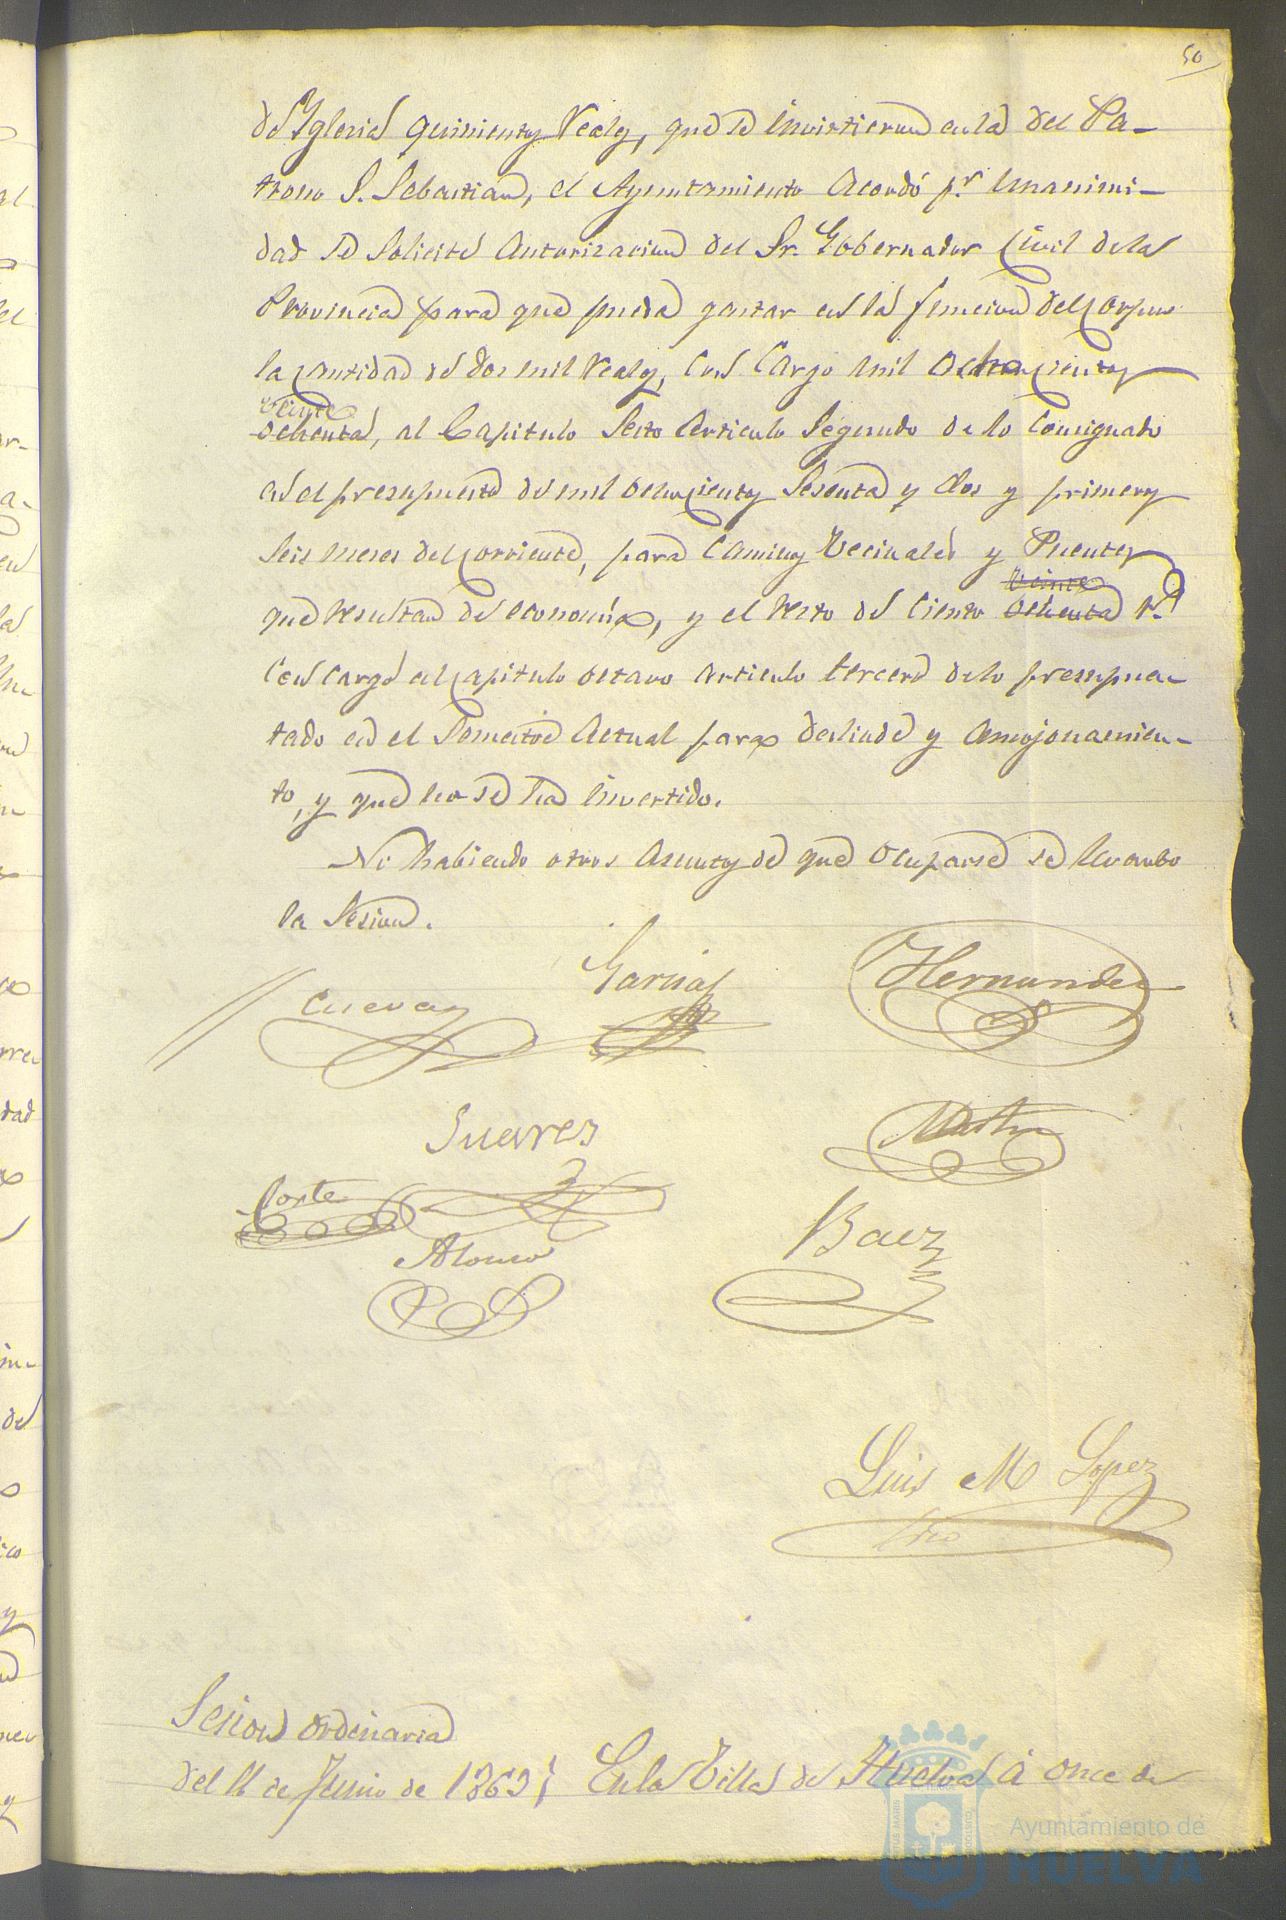 50
de Yglesia quinientos reales, que se invirtieron en la del Pa-
trono S. Sebastian, el Ayuntamiento acordó pr. unanimi-
dad se solicite autorizacion del Sr. Gobernador Civil de la
Provincia para que pueda gastar en la funcion del Corpus
la cantidad de dos mil reales, con cargo mil ochocientos
veinte
ochenta, al Capitulo sesto articulo segundo de lo consignado
en el presupuesto de mil ochocientos sesenta y dos y primeros
seis meses del corriente, para caminos vecinales y Puentes
veinte
que resultan de economía, y el resto de ciento ochenta rs.
con cargo al capitulo octavo articulo tercero de lo presupues-
tado en el Semestre actual para deslinde y amojonamien-
to, y que no se ha invertido.
No habiendo otros asuntos de que ocuparse se levantó
la Sesion.
Cuevas
Garcia
Hernandez
Suarez
Corte
Alonso
Baez
Luis M Lopez
Srio
Sesion ordinaria
del 11 de Junio de 1863 En la Villa de Huelva á once de
Ayuntamiento de
HUELVA